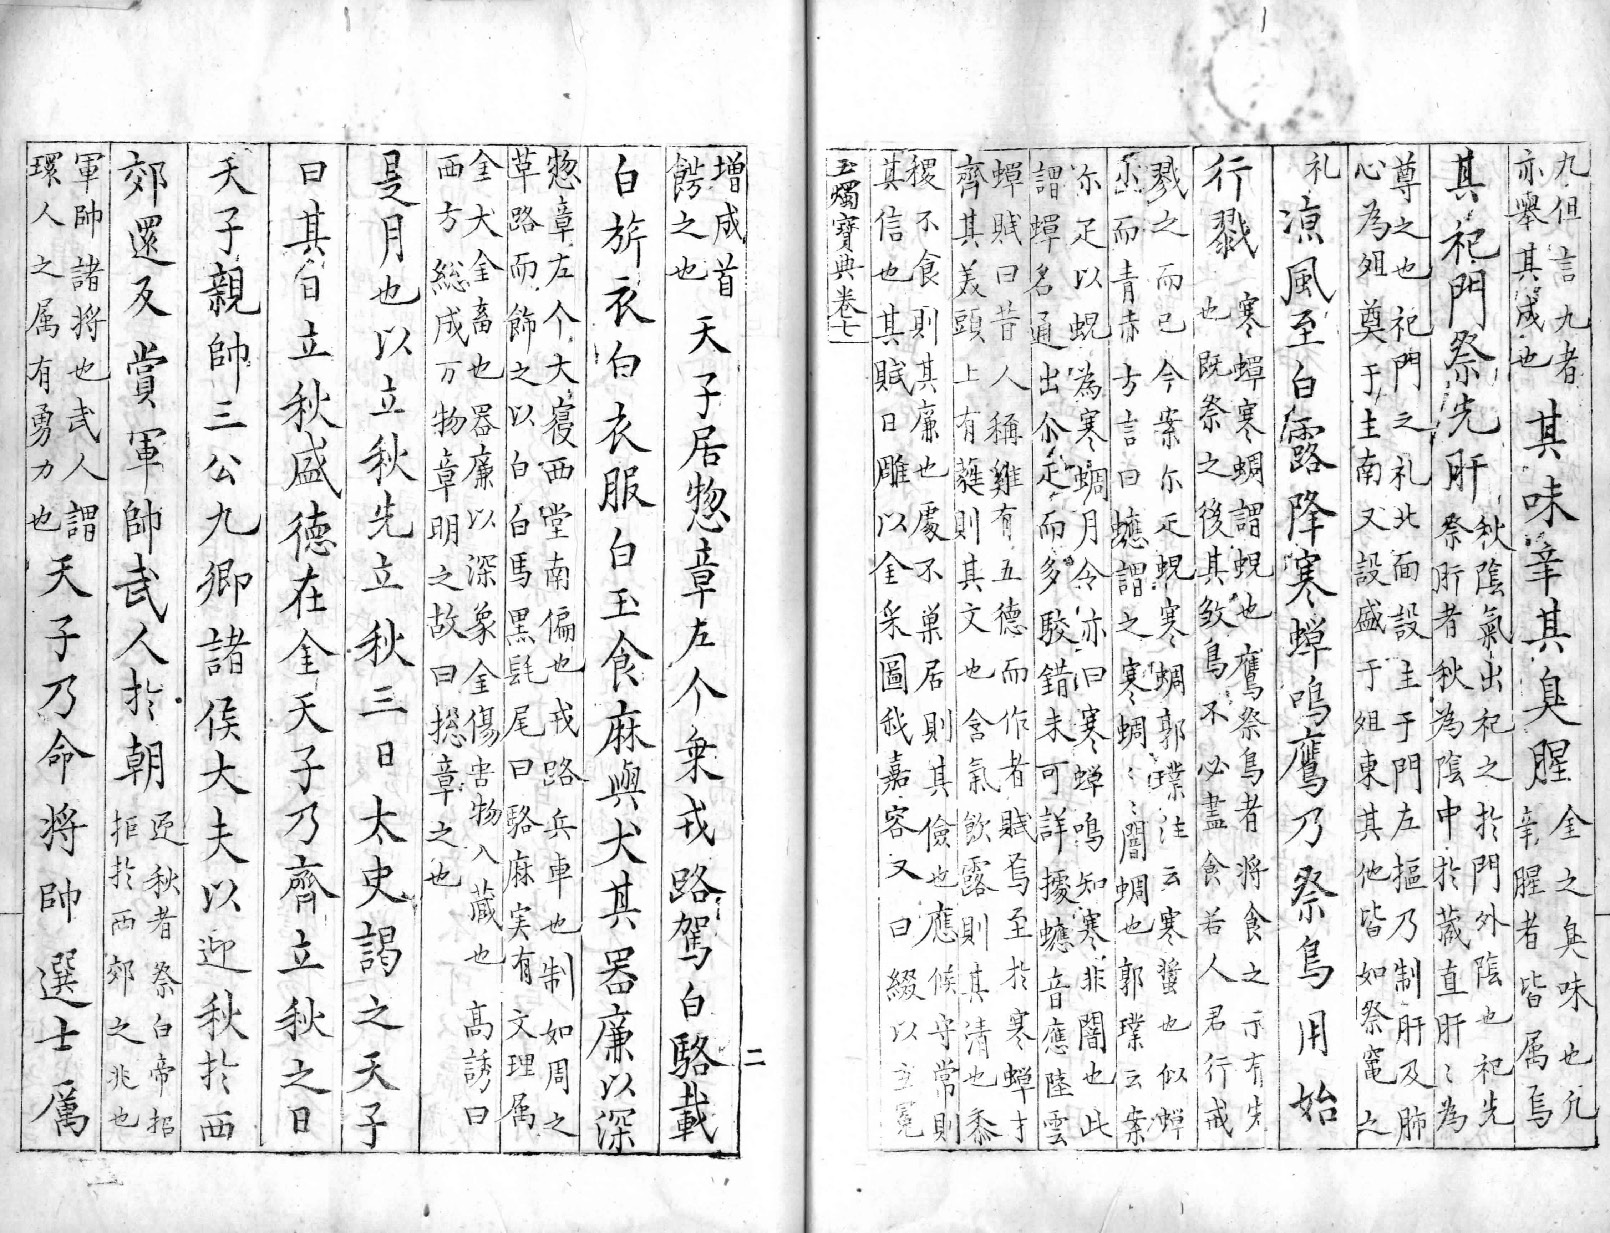 九但言九者亦舉其成也其味辛其臭腥金之臭味也凡辛腥者皆属焉
其祀門祭先肝秋陰氣出祀之於門外陰也祀先祭肝者秋為陰中於藏直肝〻為
尊之也祀門之礼北面設主于門左樞乃制肝及肺
心為俎奠于主南又設盛于俎東其他皆如祭竈之
礼涼風至白露降寒蟬鳴鷹乃祭鳥用始
行戮寒蟬寒蜩謂蜺也鷹祭鳥者将食之示有先也既祭之後其煞鳥不必盡食若人君行戒
戮之而已今案尓疋蜺寒蜩郭璞注云寒螿也似蟬
小而青赤方言曰蟪謂之寒蜩〻〻闇蜩也郭璞云案
尓疋以蜺為寒蜩月令亦曰寒蟬鳴知寒非闇也此
謂蟬名通出尒疋而多駮錯未可詳據蟪音應陸雲
蟬賦曰昔人稱雞有五德而作者賦焉至於寒蟬才
齊其美頭上有蕤則其文也含氣飲露則其清也黍
稷不食則其廉也處不巢居則其儉也應候守常則
其信也其賦曰雕以金采圖我嘉容又曰綴以玄冕
玉燭寶典卷七
二
増成首餝之也天子居惣章左个乗戎路駕白駱載
白旂衣白衣服白玉食麻與犬其器廉以深
惣章左个大寝西堂南偏也戎路兵車也制如周之
草路而飾之以白白馬黒髦尾曰駱麻実有文理属
金犬金畜也器廉以深象金傷害物入藏也高誘曰
西方総成万物章明之故曰揔章之也
是月也以立秋先立秋三日太史謁之天子
曰其日立秋盛徳在金天子乃齊立秋之日
天子親帥三公九卿諸侯大夫以迎秋於西
郊還及賞軍帥武人於朝迎秋者祭白帝招拒於西郊之兆也
軍帥諸将也武人謂環人之属有勇力也天子乃命将帥選士厲